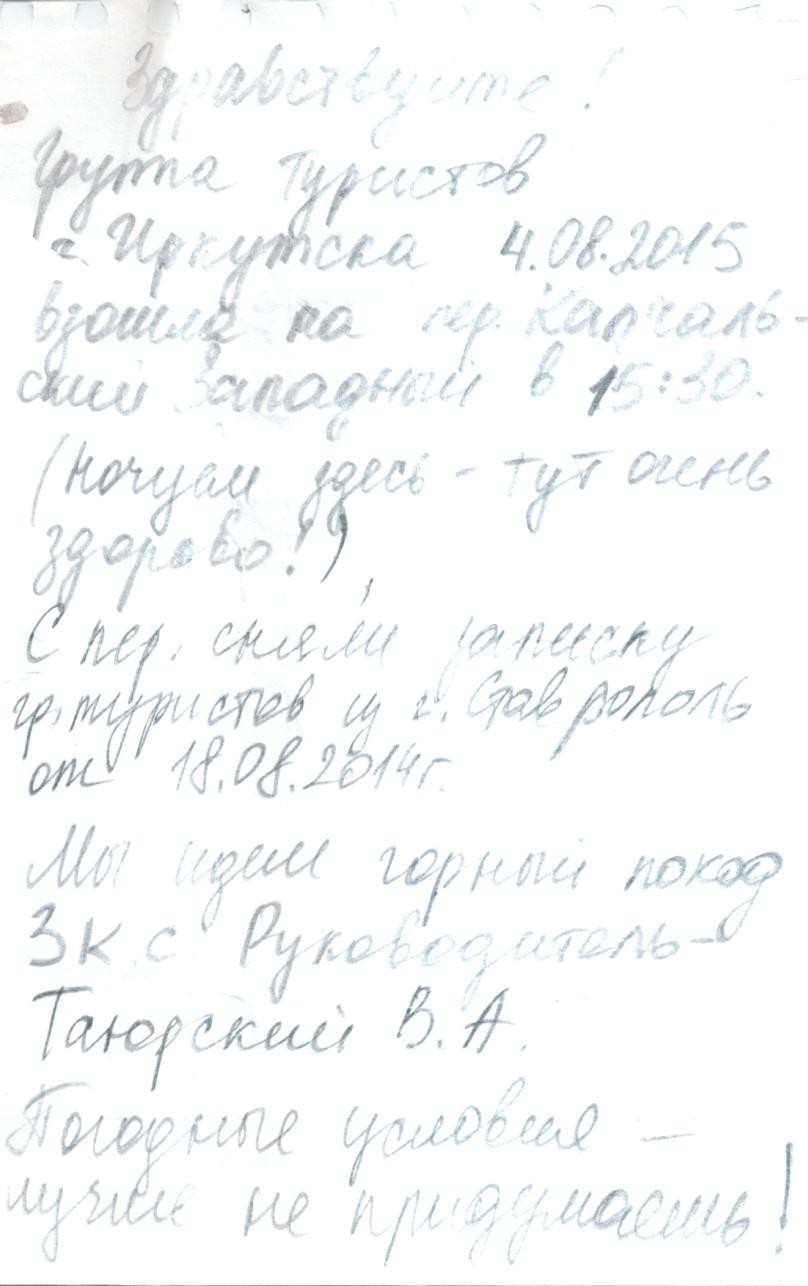 Здравствуйте!
Группа туристов
г. Иркутска 4.08.2015
взошла на пер. Капчаль-
ский Западный в 15:30.
(ночуем здесь - тут очень
здорово!)
С пер. сняли записку
гр. туристов из г. Ставрополь
от 18.08.2014г.
Мы идем горный поход
3 к.с Руководитель-
Таюрский В.А.
Погодные условия —
лучше не придумаешь!